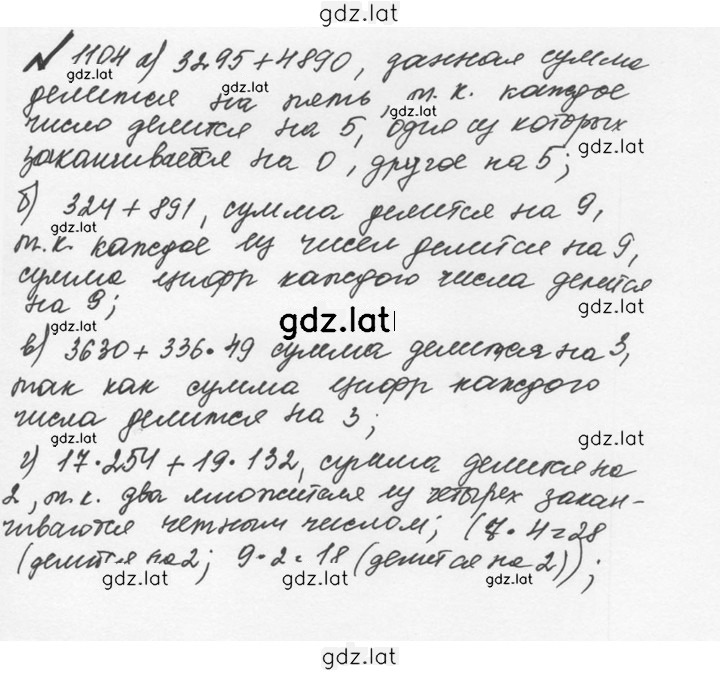 gdz.lat
№ 1104 а) 3295+4890, данная сумма
gdz.lat
делится на пять, т. к. каждое
gdz.lat
число делится на 5, одно из которых
gdz.lat
заканчивается на 0, другое на 5;
б) 324 + 891, сумма делится на 9,
gdz.lat
т. к. каждое из чисел делится на 9,
сумма цифр каждого числа делится
на 9;
gdz.lat
gdz.lat
gdz.lat
в) 3630 + 336·49 сумма делится на 3,
так как сумма цифр каждого
числа делится на 3;
gdz.lat
gdz.lat
г) 17·254 + 19·132, сумма делится на
2, т. к. два множителя из четырех закан-
чиваются четным числом; (7·4=28
(делится на 2; 9·2=18 (делится на 2));
gdz.lat
gdz.lat
gdz.lat
gdz.lat